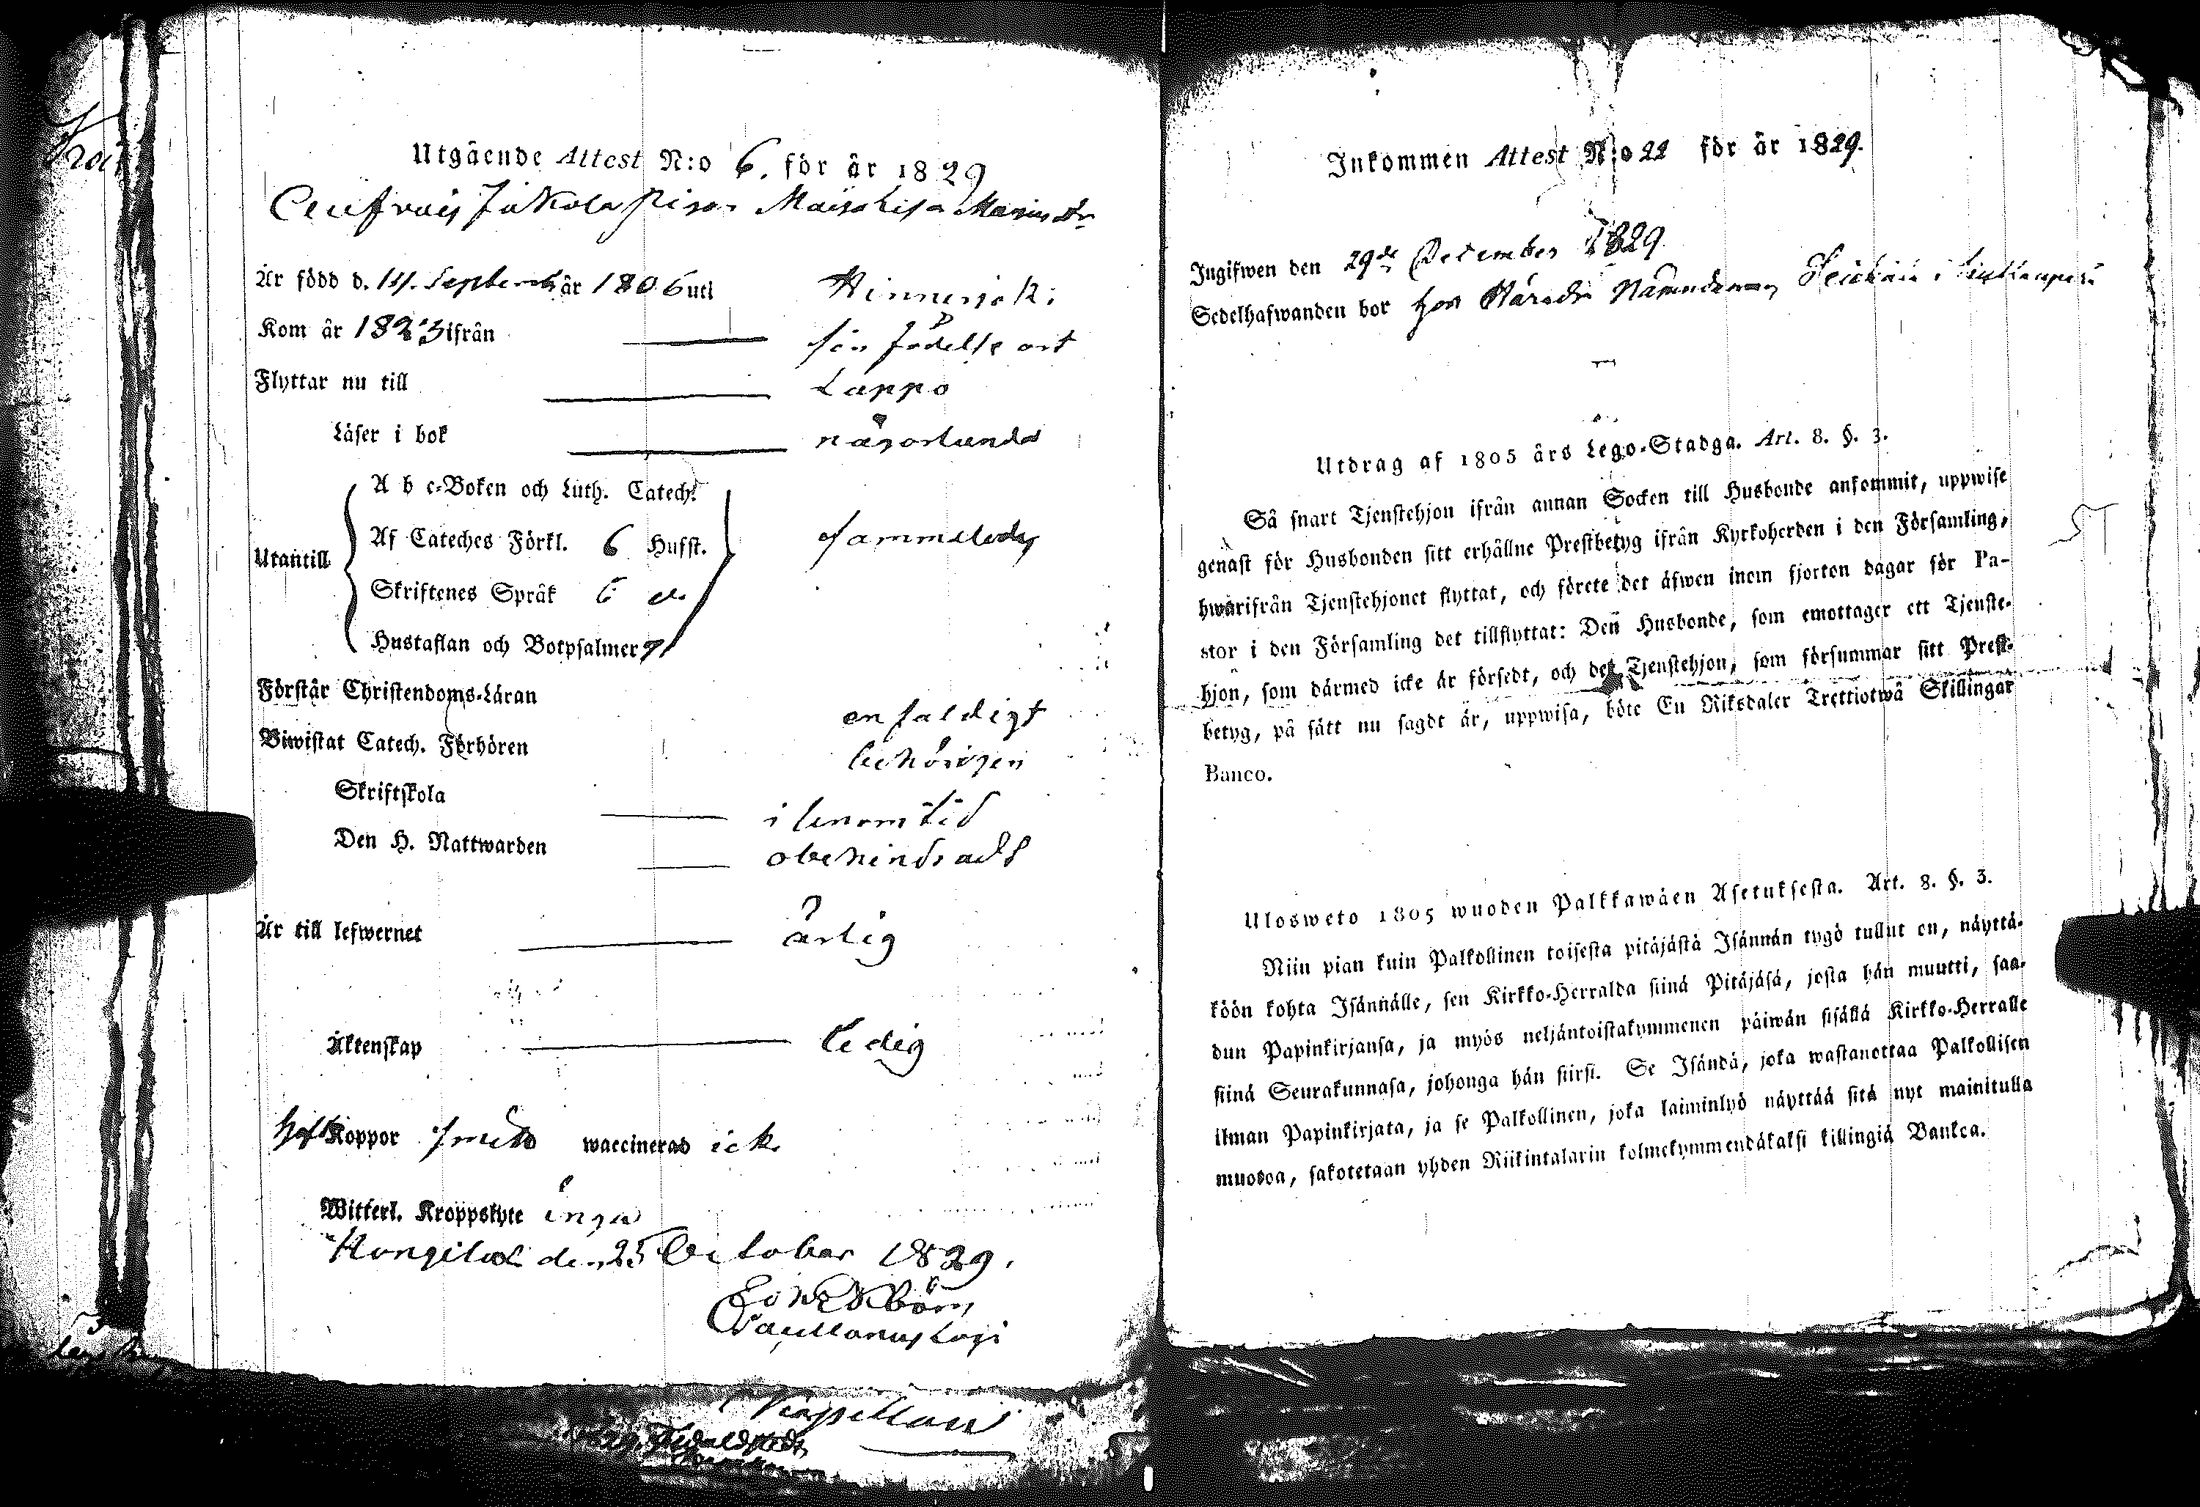 Utgående Attest N:o 6. för år 1829
Jakola pigan Maja Lisa
Är född d. 14. September år 1806 uti Hinnerjoki
Kom år 1823 ifrån sin födelse ort
Flyttar nu till Lappo
Läser i bok någorlunda
A b c-Boken och Luth. Catech.
Af Cateches Förkl. 6 Hufst.
Utantill sammeledes
Skriftenes Språk 6 d:o
Hustaflan och Botpsalmer
Förstår Christendoms-Läran enfaldigt
Biwistat Catech. Förhören behörigen
Skriftskola i lenom tid
Den H. Nattwarden obehindrad
Är till lefwernet ärlig
Äktenskap ledig
haft Koppor waccinerad icke
Witterl. Kroppslyte inga
Hongilax den 25 October 1829.
Kapellan
Inkommen Attest N:o 22 för år 1829.
Ingifwen den 29de December 1829
Sedelhafwanden bor hos Härads Nämndeman
Utdrag af 1805 års Lego-Stadga. Art. 8. §. 3.
Så snart Tjenstehjon ifrån annan Socken till Husbonde ankommit, uppwise
genast för Husbonden sitt erhållne Prestbetyg ifrån Kyrkoherden i den Församling,
hwarifrån Tjenstehjonet flyttat, och förete det äfwen inom fjorton dagar för Pa-
stor i den Församling det tillflyttat: Den Husbonde, som emottager ett Tjenste-
hjon, som därmed icke är försedt, och det Tjenstehjon, som försummar sitt Prest-
betyg, på sätt nu sagdt är, uppwisa, böte En Riksdaler Trettiotwå Skillingar
Banco.
Ulosweto 1805 wuoden Palkkawäen Asetuksesta. Art. 8. §. 3.
Niin pian kuin Palkollinen toisesta pitäjästä Isännän tygö tullut on, näyttä-
köön kohta Isännälle, sen Kirkko-Herralda siinä Pitäjäsä, josta hän muutti, saa-
dun Papinkirjansa, ja myös neljäntoistakymmenen päiwän sisällä Kirkko-Herralle
siinä Seurakunnasa, johonga hän siirsi. Se Isändä, joka wastanottaa Palkollisen
ilman Papinkirjata, ja se Palkollinen, joka laiminlyö näyttää sitä nyt mainitulla
muodoa, sakotetaan yhden Riikintalarin kolmekymmendäkaksi killingiä Bankoa.